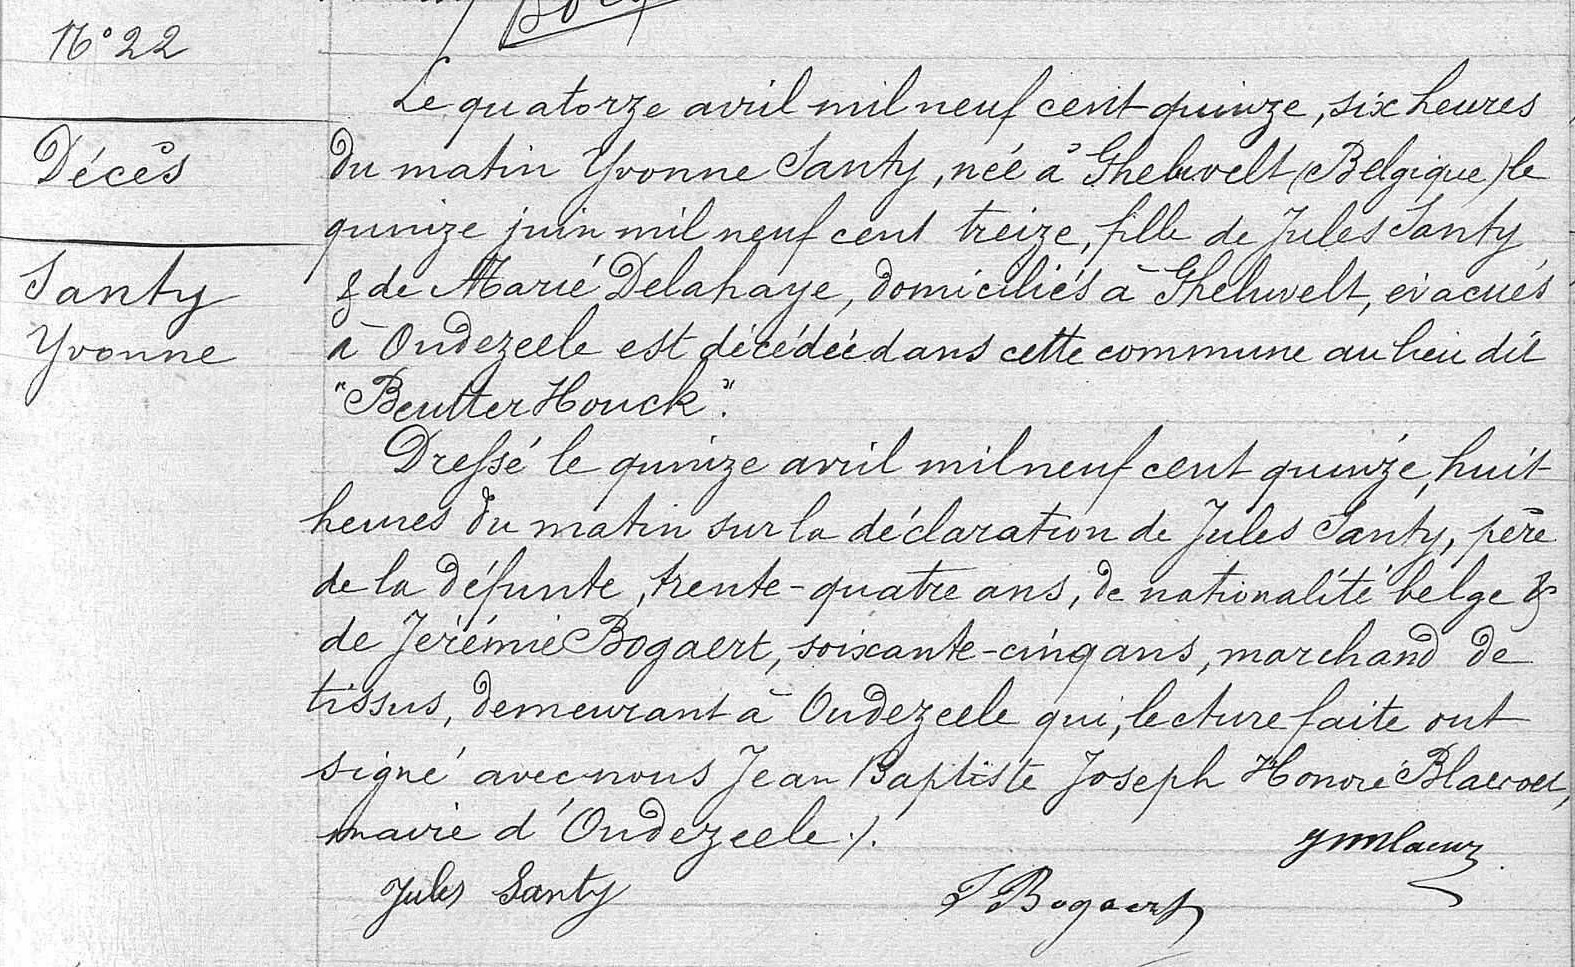 N° 22
Le quatorze avril mil neuf cent quinze, six heures
Décès
du matin Yvonne Santy, née à Gheluvelt (Belgique) le
quinze juin mil neuf cent treize, fille de Jules Santy
Santy
& de Marie Delahaye, domiciliés à Gheluvelt, évacués
Yvonne
à Oudezeele est décédée dans cette commune au lieu dit
"Beutter Houck".
Dressé le quinze avril mil neuf cent quinze, huit
heures du matin sur la déclaration de Jules Santy, père
de la défunte, trente-quatre ans, de nationalité belge &
de Jérémie Bogaert, soixante-cinq ans, marchand de
tissus, demeurant à Oudezeele qui, lecture faite ont
signé avec nous Jean Baptiste Joseph Honoré Blaevoet,
maire d'Oudezeele ./.
Jules Santy
J Bogaert